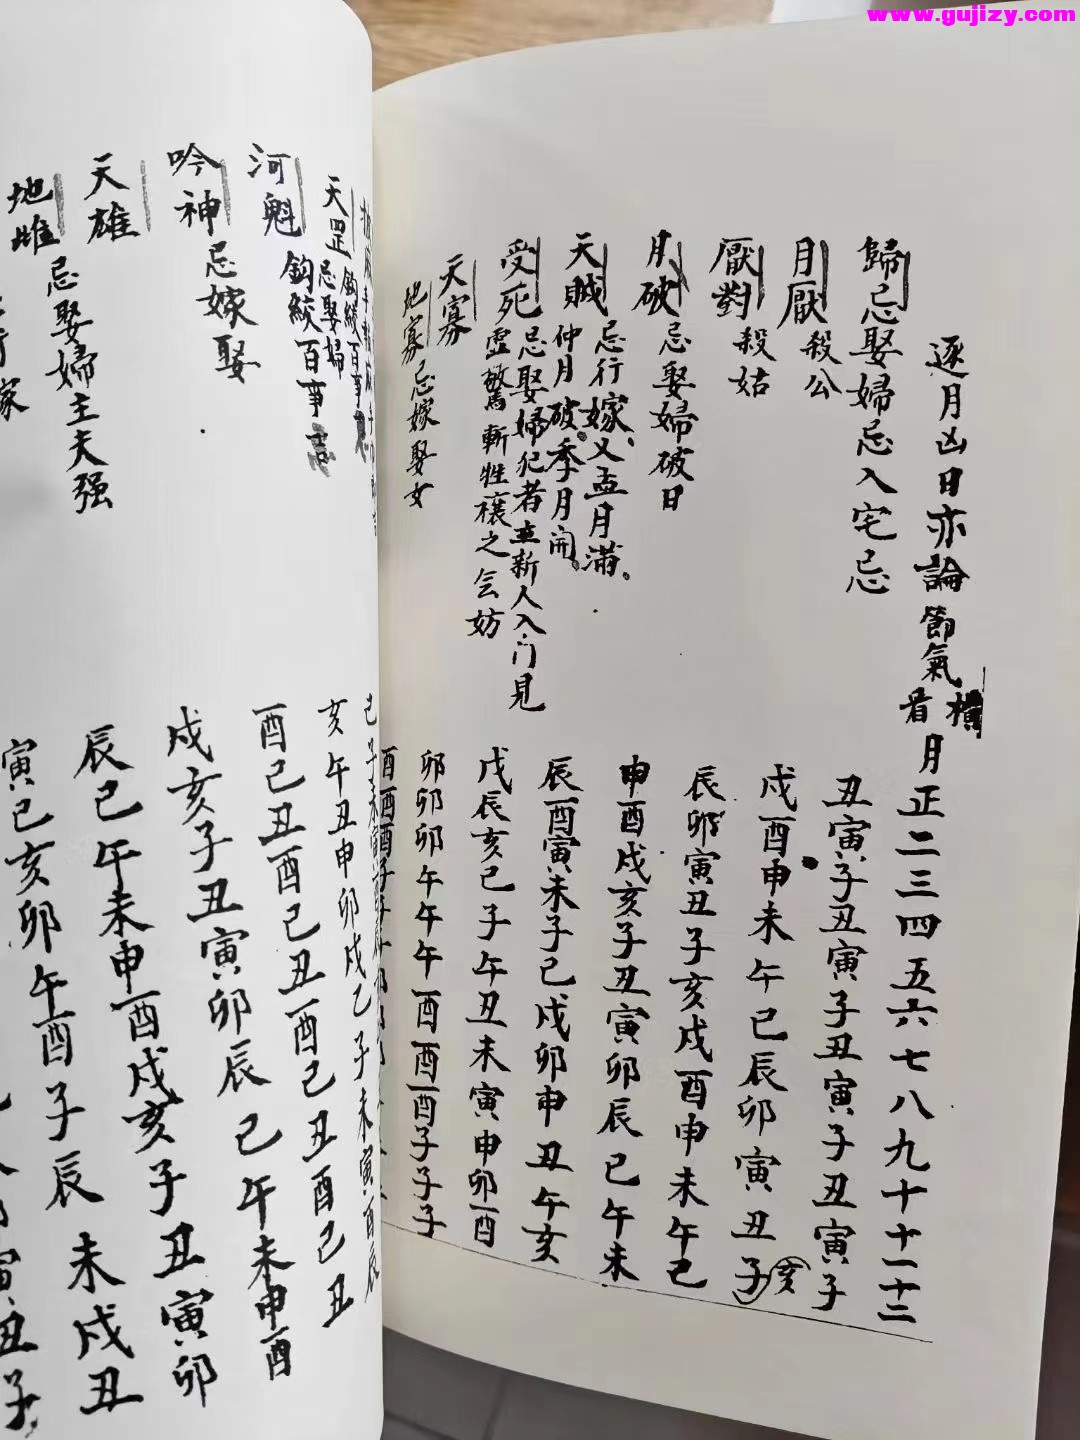 www.gujizy.com
逐月凶日亦論節氣橫看月正二三四五六七八九十十一十二
歸忌娶婦忌入宅忌 丑寅子丑寅子丑寅子丑寅子
月厭殺公 戌酉申未午巳辰卯寅丑子亥
厭對殺姑 辰卯寅丑子亥戌酉申未午巳
月破忌娶婦破日 申酉戌亥子丑寅卯辰巳午未
天賊忌行嫁又孟月滿。
仲月破。季月開。 辰酉寅未子巳戌卯申丑午亥
受死忌娶婦犯者主新人入门見
虛驚斬牲禳之会妨 戌辰亥巳子午丑未寅申卯酉
天寡
地寡忌嫁娶女 卯卯卯午午午酉酉酉子子子
酉酉酉子
天罡鈎絞百事忌娶婦 亥午丑申卯戌
巳子未寅酉辰
河魁鈎絞百事忌
酉巳丑酉巳丑酉巳丑酉巳丑
吟神忌嫁娶
天雄忌娶婦主夫强
戌亥子丑寅卯辰巳午未申酉
地雌
辰巳午未申酉戌亥子丑寅卯
寅巳亥卯午酉子辰未戌丑